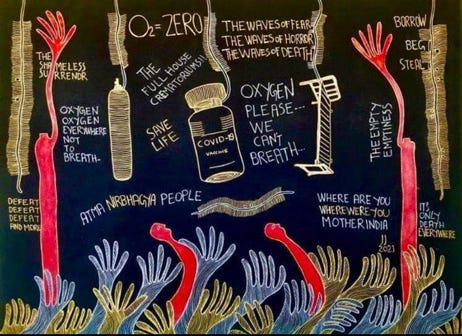 O2=ZERO
THE WAVES OF FEAR
THE WAVES OF HORROR
THE WAVES OF DEATH
BORROW
BEG
STEAL
THE
SHAMELESS
SURRENDR
THE
FULL HOUSE
CREMATORIUMS!!
OXYGEN
OXYGEN
EVERYWHERE
NOT
TO
BREATH..
SAVE
LIFE
COVID-19
VACCINE
OXYGEN
PLEASE...
WE
CANT
BREATH..
THE EMPTY
EMPTINESS
DEFEAT
DEFEAT
DEFEAT
AND MORE
ATMA NIRBHAGYA PEOPLE
WHERE ARE YOU
WHERE WERE YOU
MOTHER INDIA
2021
ITS
ONLY
DEATH
EVERYWHERE